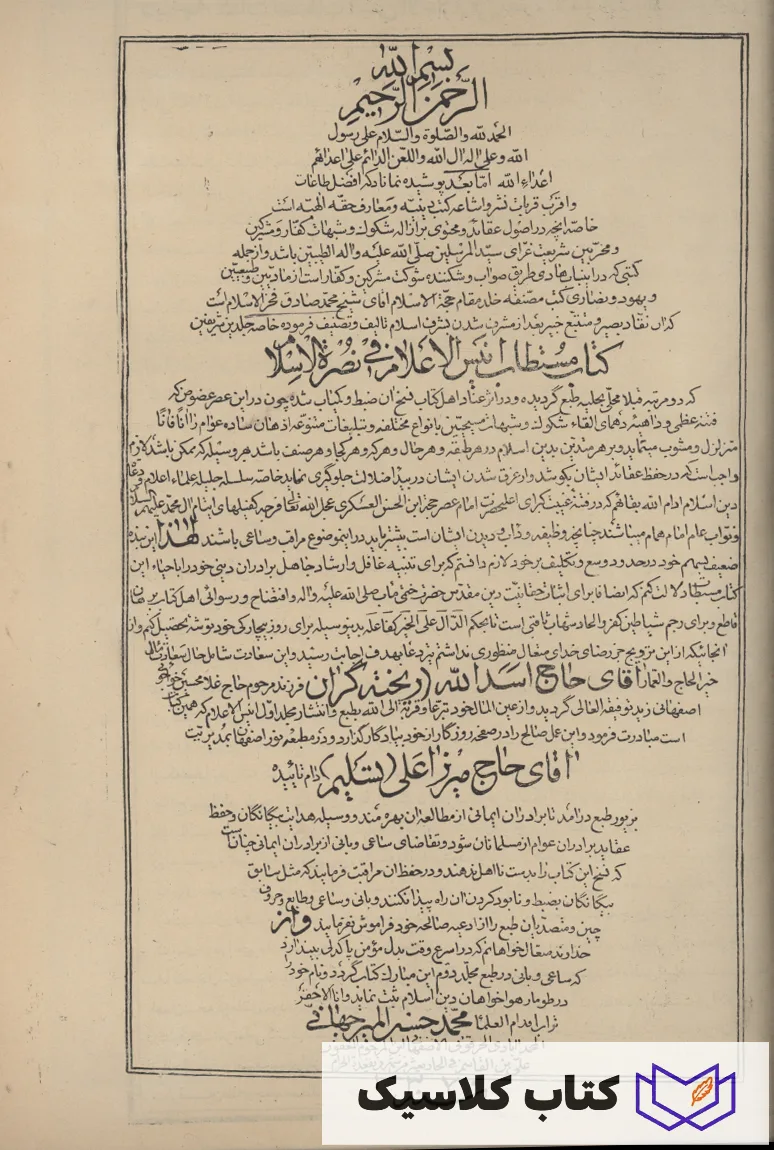 بسم الله
الرحمن الرحیم
الحمد لله والصلوة والسلام علی رسول
الله وعلی اله ال الله واللعن الدائم علی اعدائهم
اعداء الله اما بعد پوشیده نماناد که افضل طاعات
واقرب قربات نشر واشاعه کتب دینیه ومعارف حقه الهیه است
خاصه انچه در اصول عقاید ومحتوی بر ازاله شکوک وشبهات کفار ومشرکین
ومخربین شریعت غرای سید المرسلین صلی الله علیه واله الطیبین باشد واز جمله
کتبی که در این باب هادی طریق صواب وشکننده شوکت مشرکین وکفار است از مادیین وطبیعیین
ویهود ونصاری کتب مصنفه خلد مقام حجة الاسلام اقای شیخ محمد صادق فخر الاسلام است
که ان نقاد بصیر ومتتبع خبیر بعد از مشرف شدن بشرف اسلام تالیف وتصنیف فرموده خاصه جلدین شریفین
کتاب مستطاب انیس الاعلام فی نصرة الاسلام
که دو مرتبه قبلا محلی بحلیه طبع گردیده ودر اثر عناد اهل کتاب نسخ ان ضبط وکمیاب شده چون در این عصر عضوض که
فتنه عظمی وداهیه دهمای القاء شکوک وشبهات مسیحیین بانواع مختلفه وتبلیغات متنوعه اذهان ساده عوام را انا فانا
متزلزل ومشوب مینماید وبر هر متدین بدین اسلام در هر طبقه وهر حال وهر که وهر کجا وهر صنف باشد بهر وسیله که ممکن باشد لازم
واجب است که در حفظ عقائد ایشان بکوشد واز غرق شدن ایشان در بیداء ضلالت جلوگیری نماید خاصه سلسله جلیله علماء اعلام
دین اسلام ادام الله بقائهم که در فتنه غیبت کبرای اعلیحضرت امام عصر حجة ابن الحسن العسکری عجل الله تعالی فرجه کفیلهای ایتام ال محمد علیهم السلام
ونواب عام امام همام میباشند چنانچه وظیفه وداب ودیدن ایشان است بیشتر باید در این موضوع مراقب وساعی باشند لهذا این بنده
ضعیف بسهم خود در حدود وسع وتکلیف بر خود لازم دانستم که برای تنبیه غافل وارشاد جاهل برادران دینی خود را باحیاء این
کتاب مستطاب دلالت کنم که انصافا برای اثبات حقانیت دین مقدس حضرت ختمی ماب صلی الله علیه واله وافتضاح ورسوائی اهل کتاب برهان
قاطع وبرای رجم شیاطین کفر والحاد شهاب ثاقبی است تا بحکم الدال علی الخیر کفاعله بدینوسیله برای روز بیچارگی خود توشه تحصیل کنم واز
انجائیکه از این ترویج جز رضای خدای متعال منظوری نداشتم تیر دعا بهدف اجابت رسید واین سعادت شامل حال سعادت مال
خیر الحاج والعمار اقای حاج اسد الله ریخته گران فرزند مرحوم حاج غلامحسین
اصفهانی زید توفیقه العالی گردید واز عین المال خود تبرعا وقربة الی الله بطبع وانتشار مجلد اول انیس الاعلام که همین کتاب
است مبادرت فرمود واین عمل صالح را در صفحه روزگار از خود بیادگار گذارد ودر مطبعه نور اصفهان بمدیریت
اقای حاج میرزا علی بستلیم دام تائیده
بزیور طبع درامد تا برادران ایمانی از مطالعه ان بهره مند ووسیله هدایت بیگانگان وحفظ
عقاید برادران عوام از مسلمانان شود وتقاضای ساعی وبانی از برادران ایمانی چنانست
که نسخ این کتاب را بدست نااهل ندهند ودر حفظ ان مراقبت فرمایند که مثل سابق
بیگانگان بضبط ونابود کردن ان راه پیدا نکنند وبانی وساعی وطابع وحروف
چین ومتصدیان طبع را از ادعیه صالحه خود فراموش نفرمایند واز
خداوند متعال خواهانم که در اسرع وقت بدل مؤمن پاکدلی بیندازد
که ساعی وبانی در طبع مجلد دوم این مبارک کتاب گردد ونام خود را
در طومار هواخواهان دین اسلام ثبت نماید وانا الاحقر
تراب اقدام العلماء محمد حسن المیرجهانی
کتاب کلاسیک